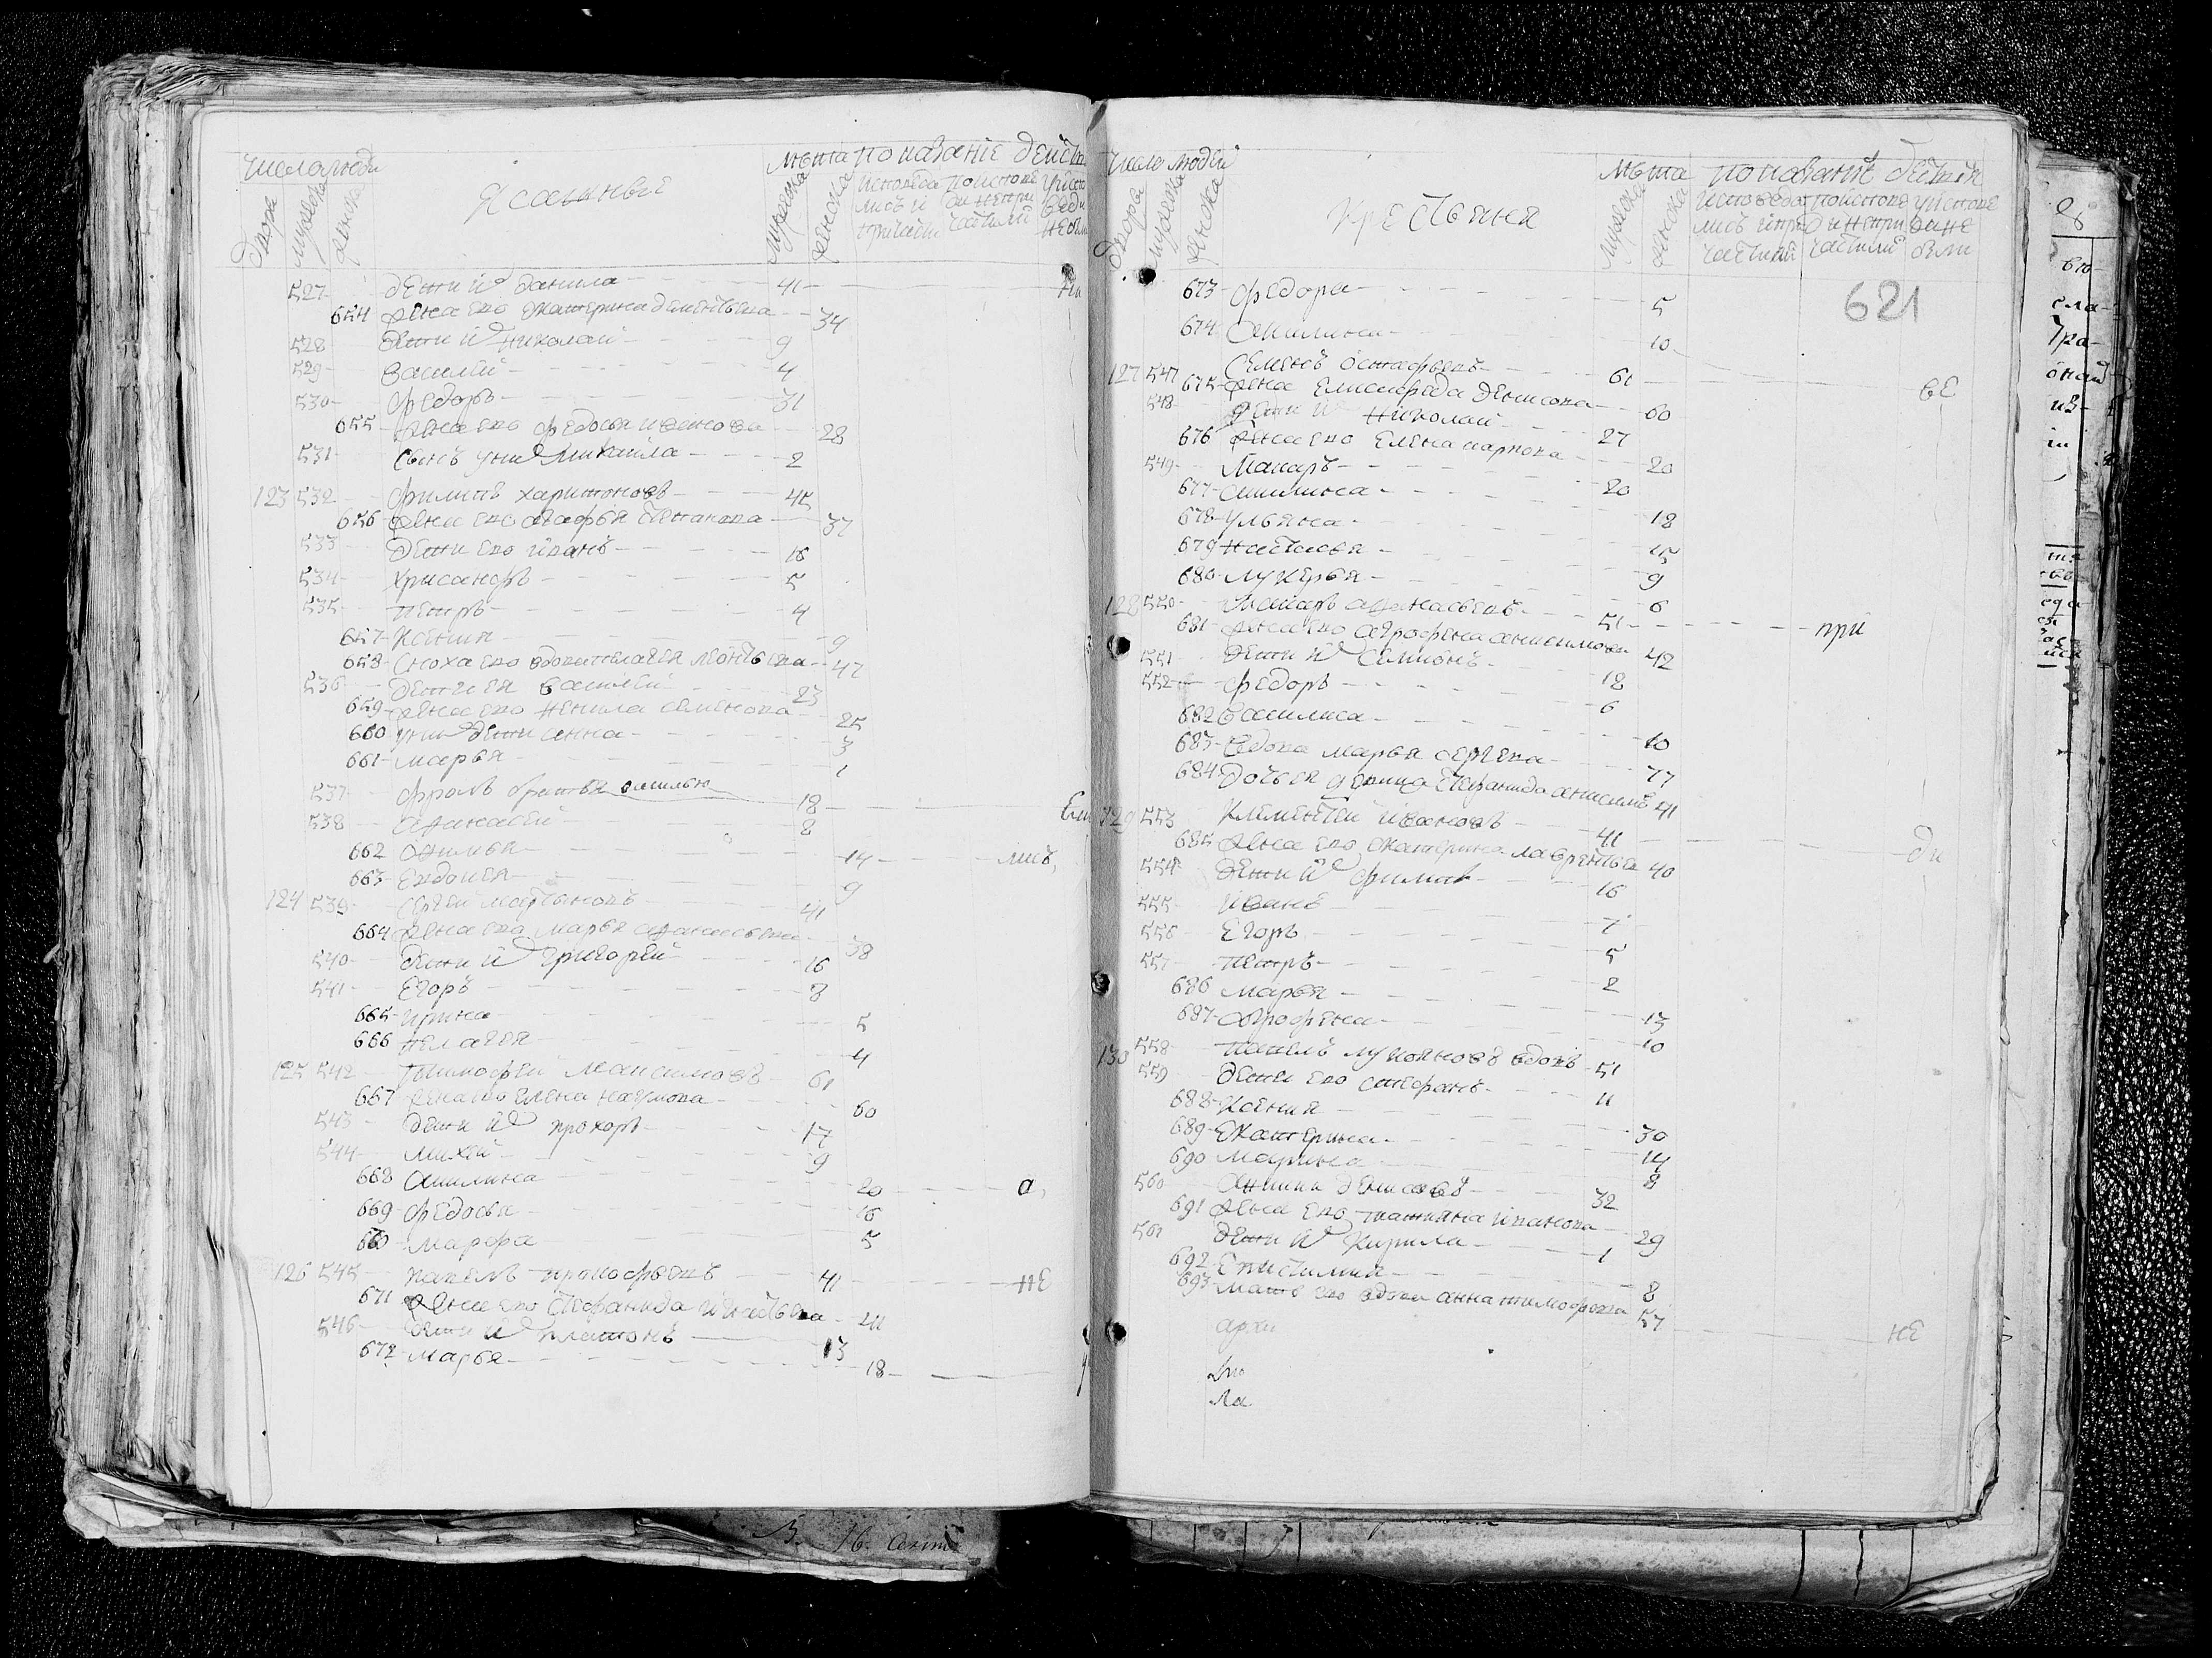 число люди
Ясашные
мѣта показаніе дейст
Двора
мужска
женска
мужска
женска
исповеда
лись и
причасти
поисповѣ
да непри
частили
уиспо
веди
небыли
527 дети их данила 41
654 жена его екатерина дементьева 34
528 дети их николай 9
529 василей 4
530 федоръ 31
655 жена его федосья иванова 28
531 сынъ уних михайла 2
123 532 филипъ харитоновъ 45
656 жена его агафья степанова 37
533 дети его иванъ 16
534 хрисанфъ 5
535 петръ 4
657 ксения 9
658 сноха его вдова пелагея леонтьева 47
536 дети ея василей 23
659 жена его ненила семенова 25
660 уних дети анна 3
661 марья 1
537 фролъ братья василью 18
538 афанасей 8
662 офимья 14 лисъ,
663 евдокея 9
124 539 сергей мартыновъ 41
664 жена его марья афанасьева 38
540 дети их григорей 16
541 егоръ 8
665 ирина 5
666 пелагея 4
125 542 тимофей максимовъ 61
667 жена его елена наумова 60
543 дети их прохоръ 17
544 михей 9
668 акилина 20 а,
669 федосья 16
660 марфа 5
126 545 павелъ прокофьевъ 41 не
671 жена его стефанида игнатьева 41
546 дети их платонъ 13
672 марья 18
число людей
крестьяня
мѣта показание действ
Дворы
мужска
женска
мужска
женска
исповеда
лись и при
частили
поисповѣ
ди непри
частили
уисповѣ
дине
были
621
673 федора 5
674 акилина 10
127 547 семенъ остафьевъ 61 ве
675 жена елисавфеда денисова 60
548 дети их николай 27
676 жена его елена карпова 20
549 макаръ 20
677 акилина 18
678 ульяна 15
679 настасья 9
680 лукерья 6
128 550 макаръ афанасьевъ 51 при
681 жена его агрофена анисимова 42
551 дети их семионъ 18
552 федоръ 6
682 василиса 10
683 вдова марья сергеева 77
684 дочь ея девица стефанида анисимов 41
129 553 клементей ивановъ 41 ди
685 жена его екатерина лаврентьева 40
554 дети их филипъ 16
555 иванъ 7
556 егоръ 5
557 петръ 2
686 марья 13
687 агрофена 10
130 558 павелъ лукояновъ вдовъ 51
559 дети его стефанъ 11
688 ксения 30
689 екатерина 14
690 марина 8
560 аникей денисовъ 32
691 жена его татияна иванова 29
561 дети их кирила 1
692 епистимия 8
693 мать его вдова анна тимофеева 57 не
архи
дио
ла